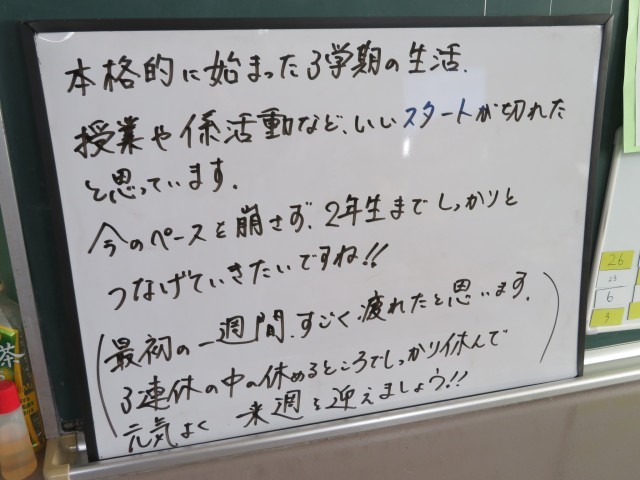 本格的に始まった3学期の生活.
授業や係活動など、いいスタートが切れた
と思っています.
今のペースを崩さず、2年生までしっかりと
つなげていきたいですね!!
(最初の一週間、すごく疲れたと思います.
3連休の中の休めるところでしっかり休んで
元気よく 来週を迎えましょう!!)
茶
26
23
6
3